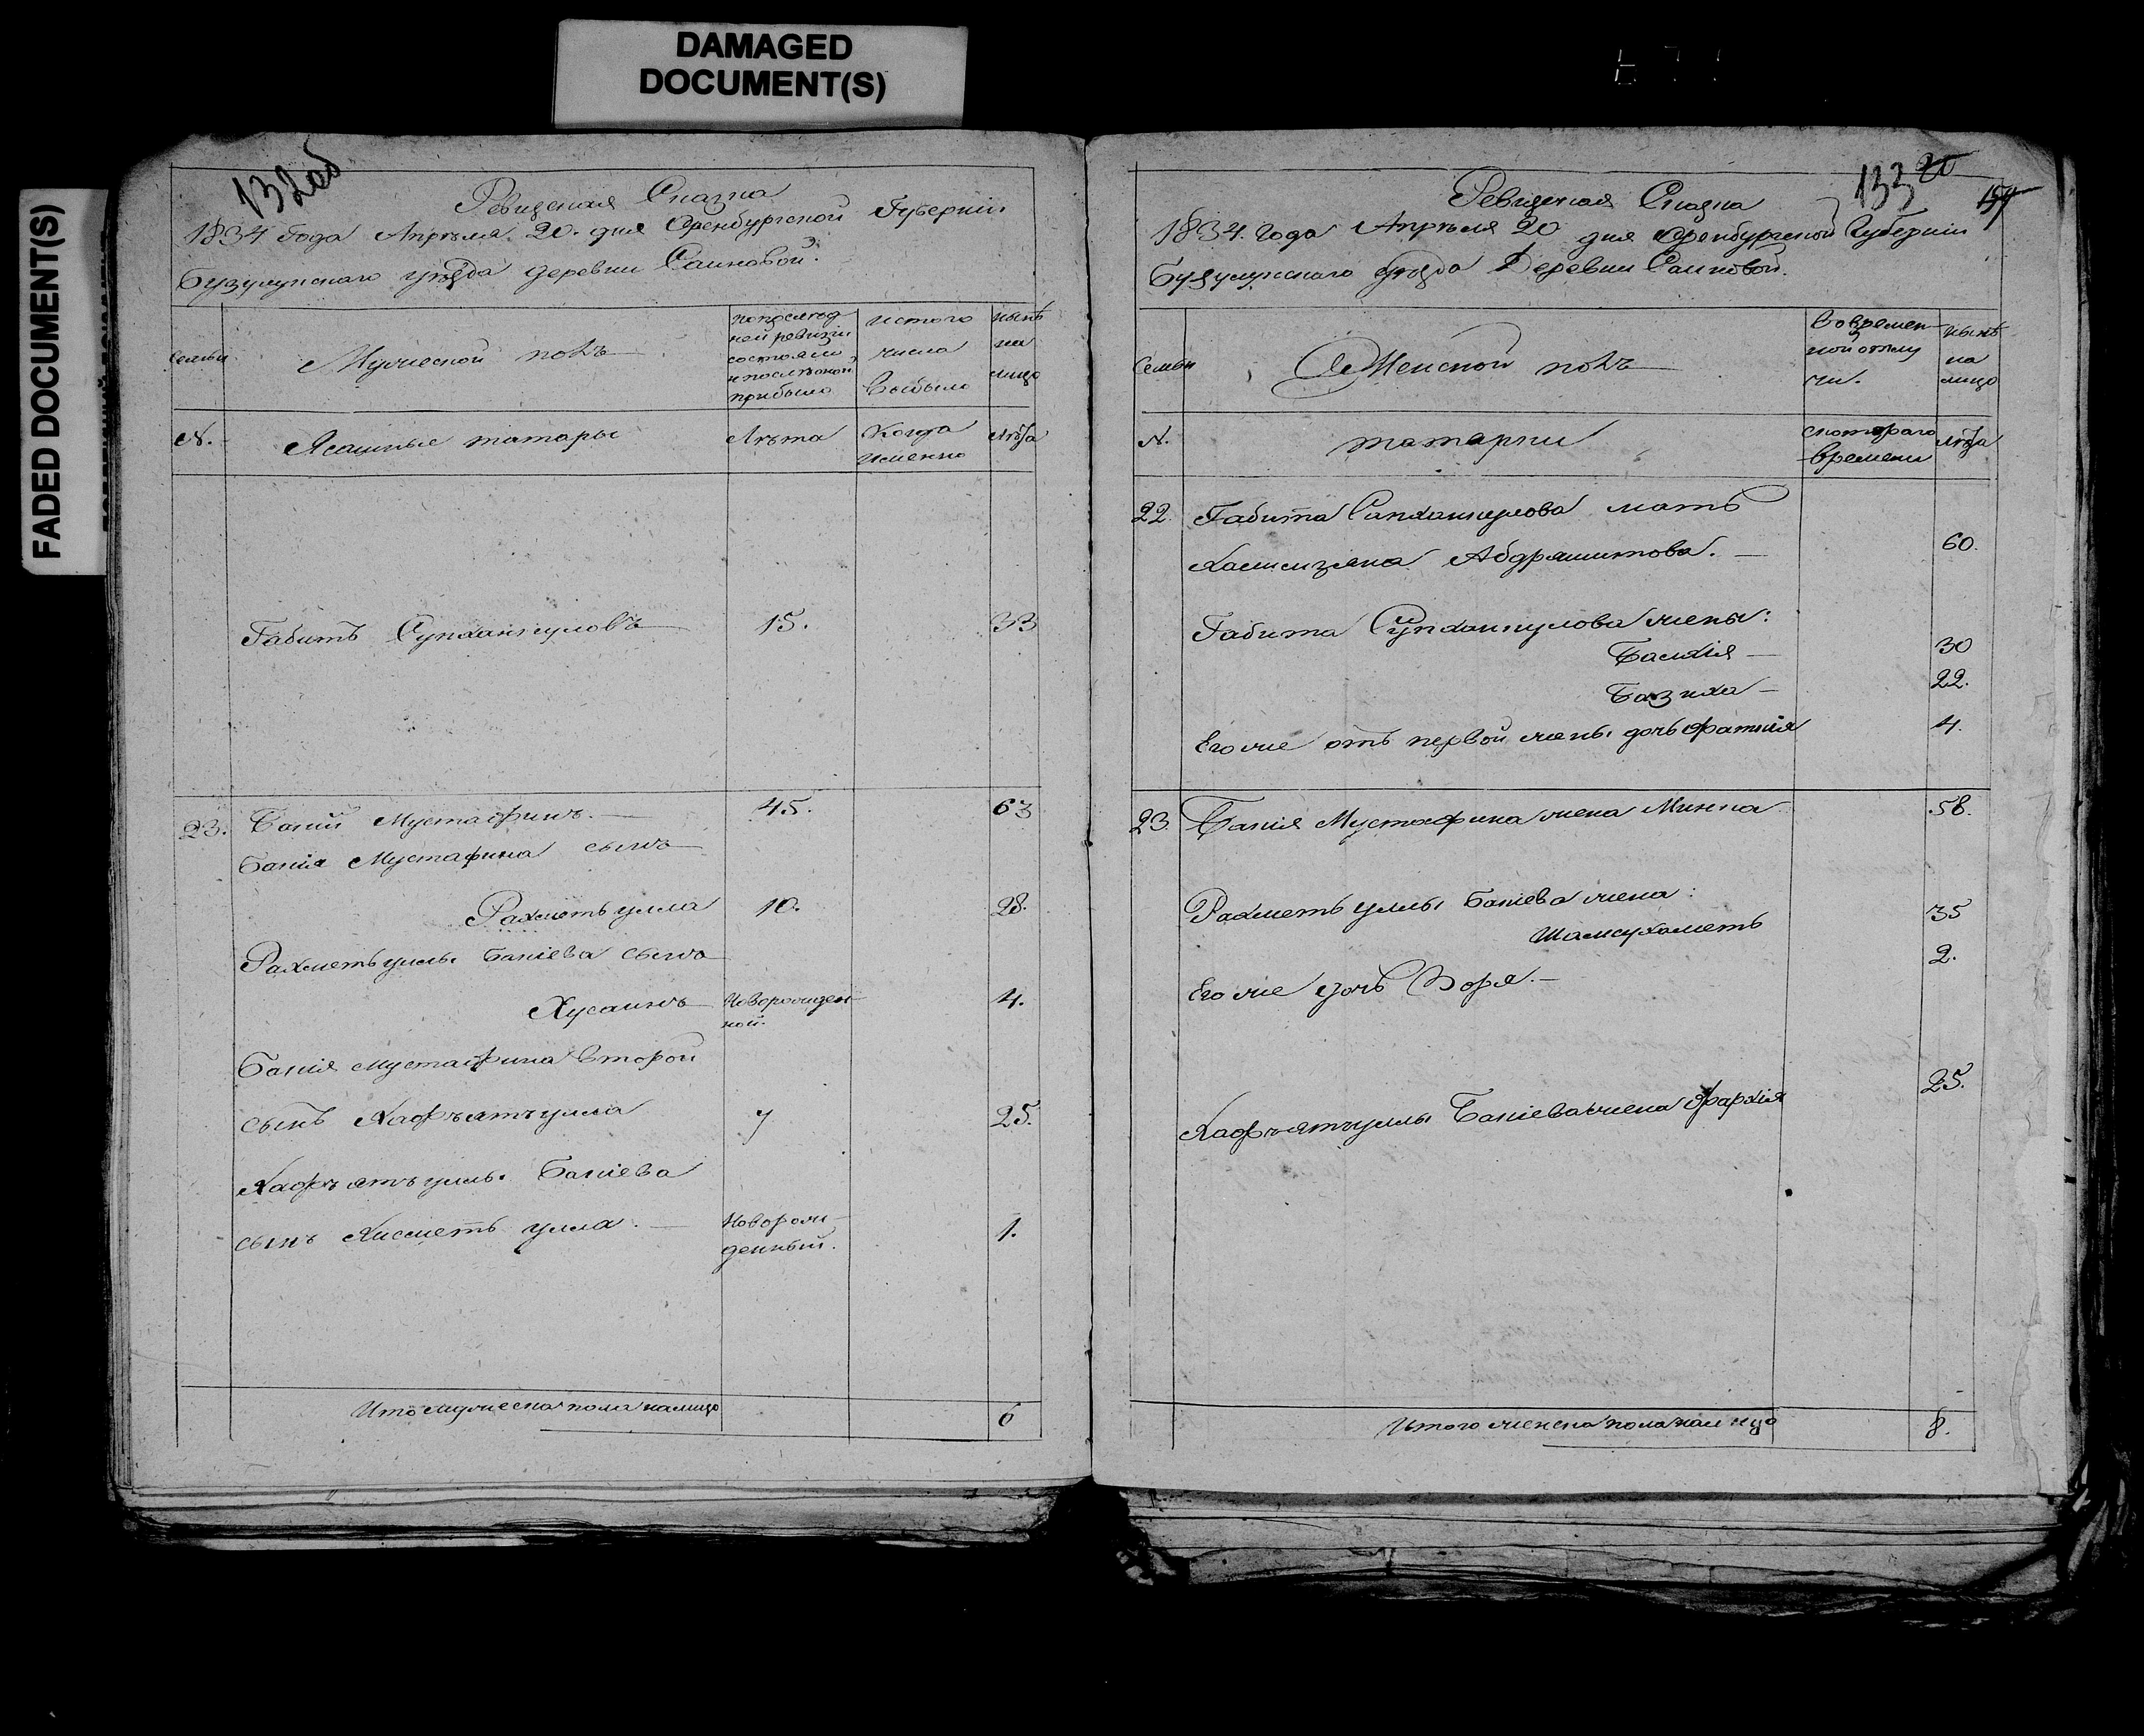 DAMAGED
DOCUMENT(S)
FADED DOCUMENT(S)
132об
Ревиская Сказка
1834 года Апреля 20. дня Оренбургской Губернiи
Бузулукскаго уезда деревни Саиновой.
Семьи
Мужеской полъ
по послед
ней ревизiи
состояло
и после оной
прибыло
изтого
числа
выбыло
ныне
на
лицо
N.
Ясашные татары
Лѣта
Когда
именно
Лѣта
Габитъ Супханкуловъ
15.
33
23.
Банiй Мустафинъ.
45.
63
Банiя Мустафина сынъ
Рахметь улла
10.
28.
Рахметь уллы Банiева сынъ
Хусаинъ
Новорожден
ной.
4.
Банiя Мустафина второй
сынъ Кафъятъулла
7
25.
Кафъятъуллы Банiева
сынъ Хисметь улла.
Новорож
денный.
1.
Итого мужеска пола налицо
6
133
20
Ревиская Сказка
1834. Года Апреля 20 дня Оренбургской Губернiи
Бузулукскаго уезда Деревни Саиновой.
Семьи
Женской полъ
Во времен
ной отлу
чки.
ныне
на
лицо
N.
татарки
с котораго
времени
Лѣта
22.
Габита Супханкулова мать
Абдряшитова.
60.
Габита Супханкулова жены:
Балхiя
30
Базиха
22.
Его же отъ первой жены дочь Фатхiя
4.
23.
Банiя Мустафина жена Минна
58.
Рахметь уллы Банiева жена:
Шамсухаметь
35
Его же дочь Зоря.
2.
Кафъятъуллы Банiева жена Фархiя
25.
Итого женска пола налицо
8.